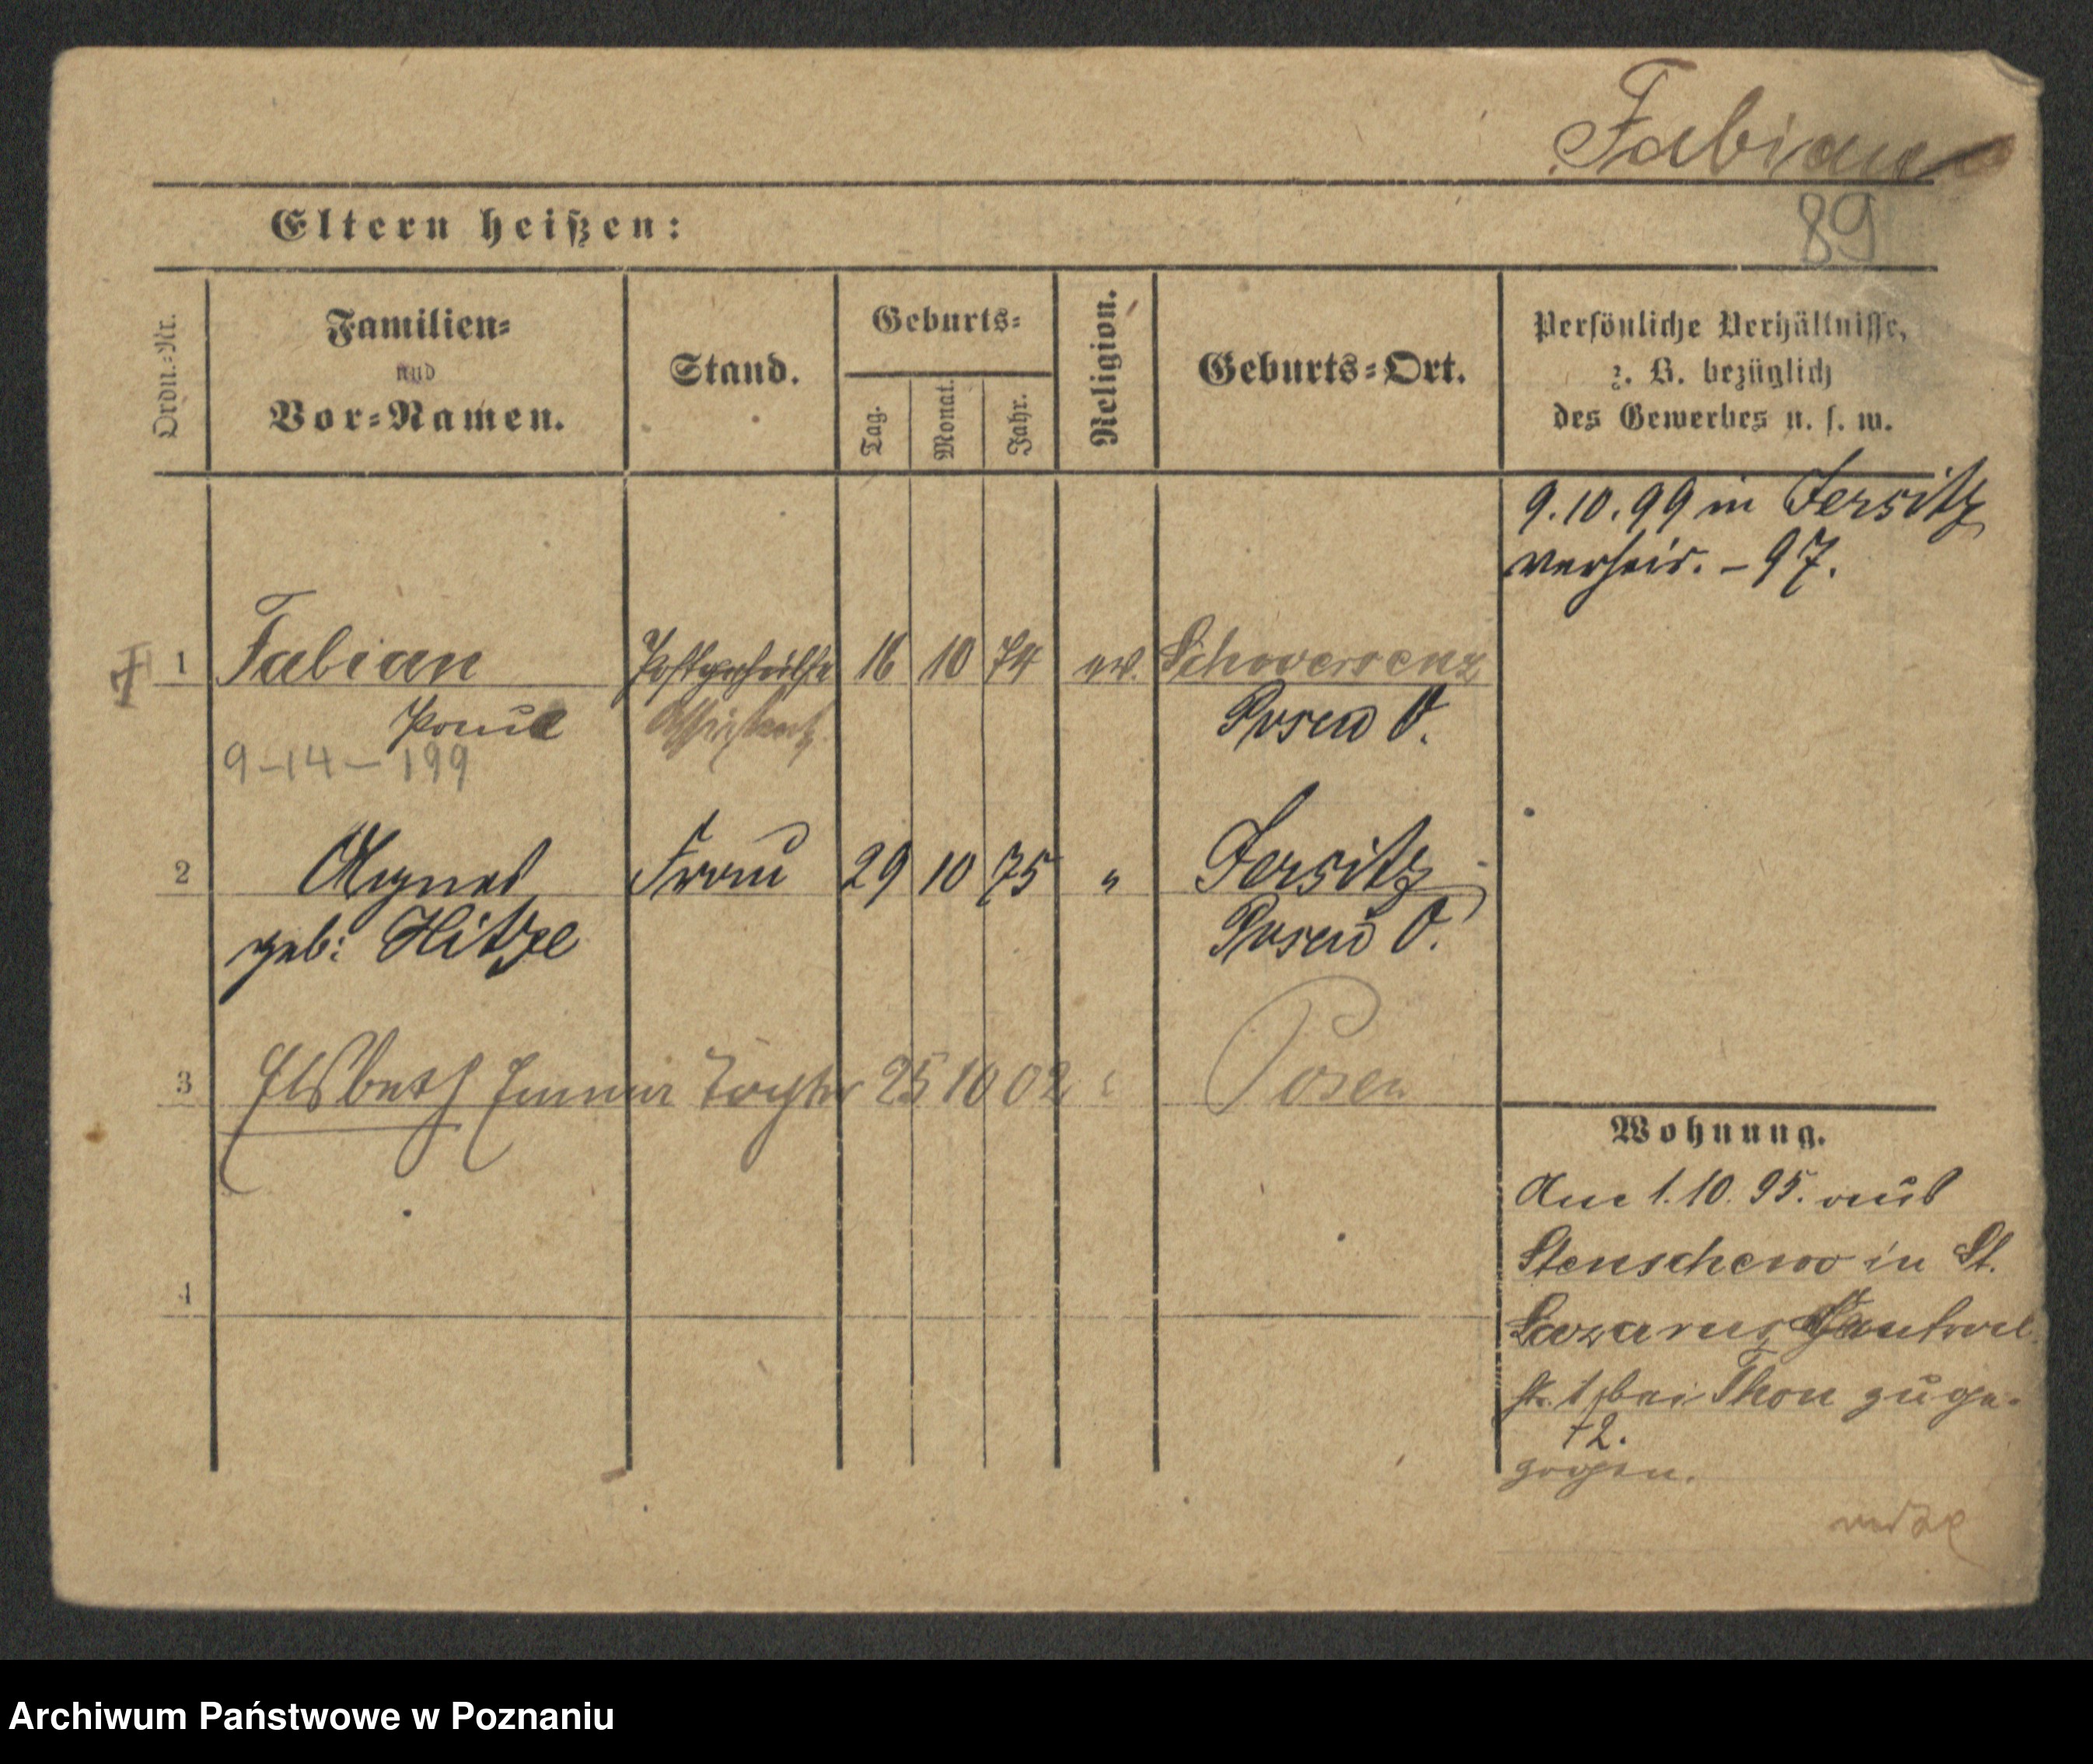 Fabian
89
Eltern heißen:
Ordn.=Nr.
Familien=
und
Vor=Namen.
Stand.
Geburts=
Tag.
Monat.
Jahr.
Religion.
Geburts=Ort.
Persönliche Verhältnisse,
z. B. bezüglich
des Gewerbes u. s. w.
9.10.99 in Jersitz
verheir. – 97.
1 Fabian Postgehülfe 16 10 74 ev. Schwersenz
Paul Assistent Posen O.
9–14–199
2 Agnes Frau 29 10 75 " Jersitz
geb: Hitze Posen O.
3 Elsbeth Emma Tochter 25 10 02 Posen
4
Wohnung.
Am 1.10.95. aus
Stenschewo in St.
Lazarus
str. 1 bei Thon zuge-
72.
zogen.
Archiwum Państwowe w Poznaniu